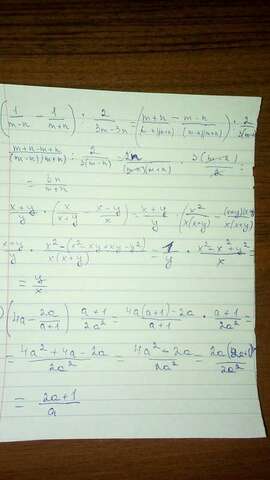 (1/m-n - 1/m+n) : 2/3m-3n = (m+n/(m-n)(m+n) - m-n/(m-n)(m+n)) : 2/3(m-n)
m+n-m+n/(m-n)(m+n) : 2/3(m-n) = 2n/(m-n)(m+n) · 3(m-n)/2 =
= 6n/m+n
x+y/y · (x/x+y - x-y/x) = x+y/y · (x²/x(x+y) - (x+y)(x-y)/x(x+y)
x+y/y · x²-(x²-xy+xy-y²)/x(x+y) = 1/y · x²-x²+y²/x
= y/x
) (4a - 2a/a+1) · a+1/2a² = 4a(a+1)-2a/a+1 · a+1/2a² =
= 4a²+4a-2a/2a² = 4a²+2a/2a² = 2a(2a+1)/2a²
= 2a+1/a